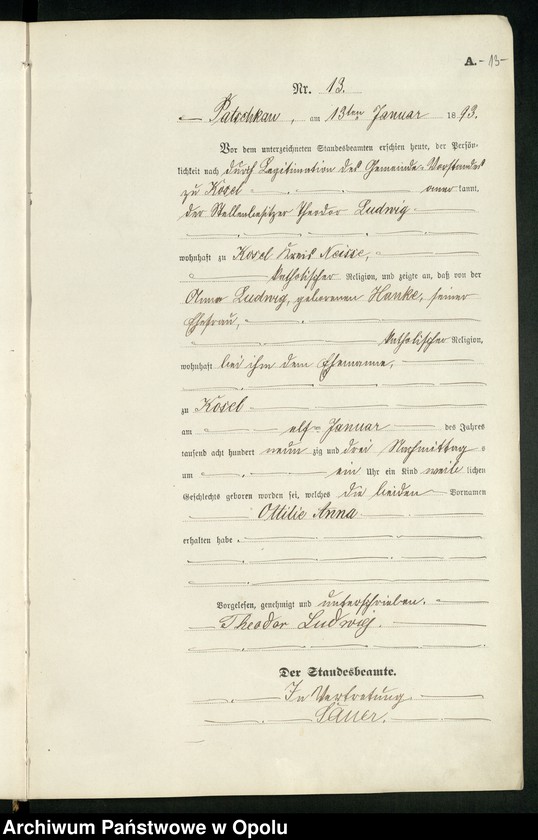 A. -13-
Nr. 13.
Patschkau, am 13ten Januar 1893.
Vor dem unterzeichneten Standesbeamten erschien heute, der Persön-
lichkeit nach durch Legitimation des Gemeinde-Vorstandes
zu Kosel anerkannt,
der Stellenbesitzer Theodor Ludwig
wohnhaft zu Kosel Kreis Neisse,
katholischer Religion, und zeigte an, daß von der
Anna Ludwig, geborenen Hanke, seiner
Ehefrau,
katholischer Religion,
wohnhaft bei ihm dem Ehemanne,
zu Kosel
am elf Januar des Jahres
tausend acht hundert neunzig und drei Nachmittag
um ein Uhr ein Kind weiblichen
Geschlechts geboren worden sei, welches die beiden Vornamen
Ottilie Anna
erhalten habe
Vorgelesen, genehmigt und unterschrieben.
Theodor Ludwig.
Der Standesbeamte.
In Vertretung
Archiwum Państwowe w Opolu